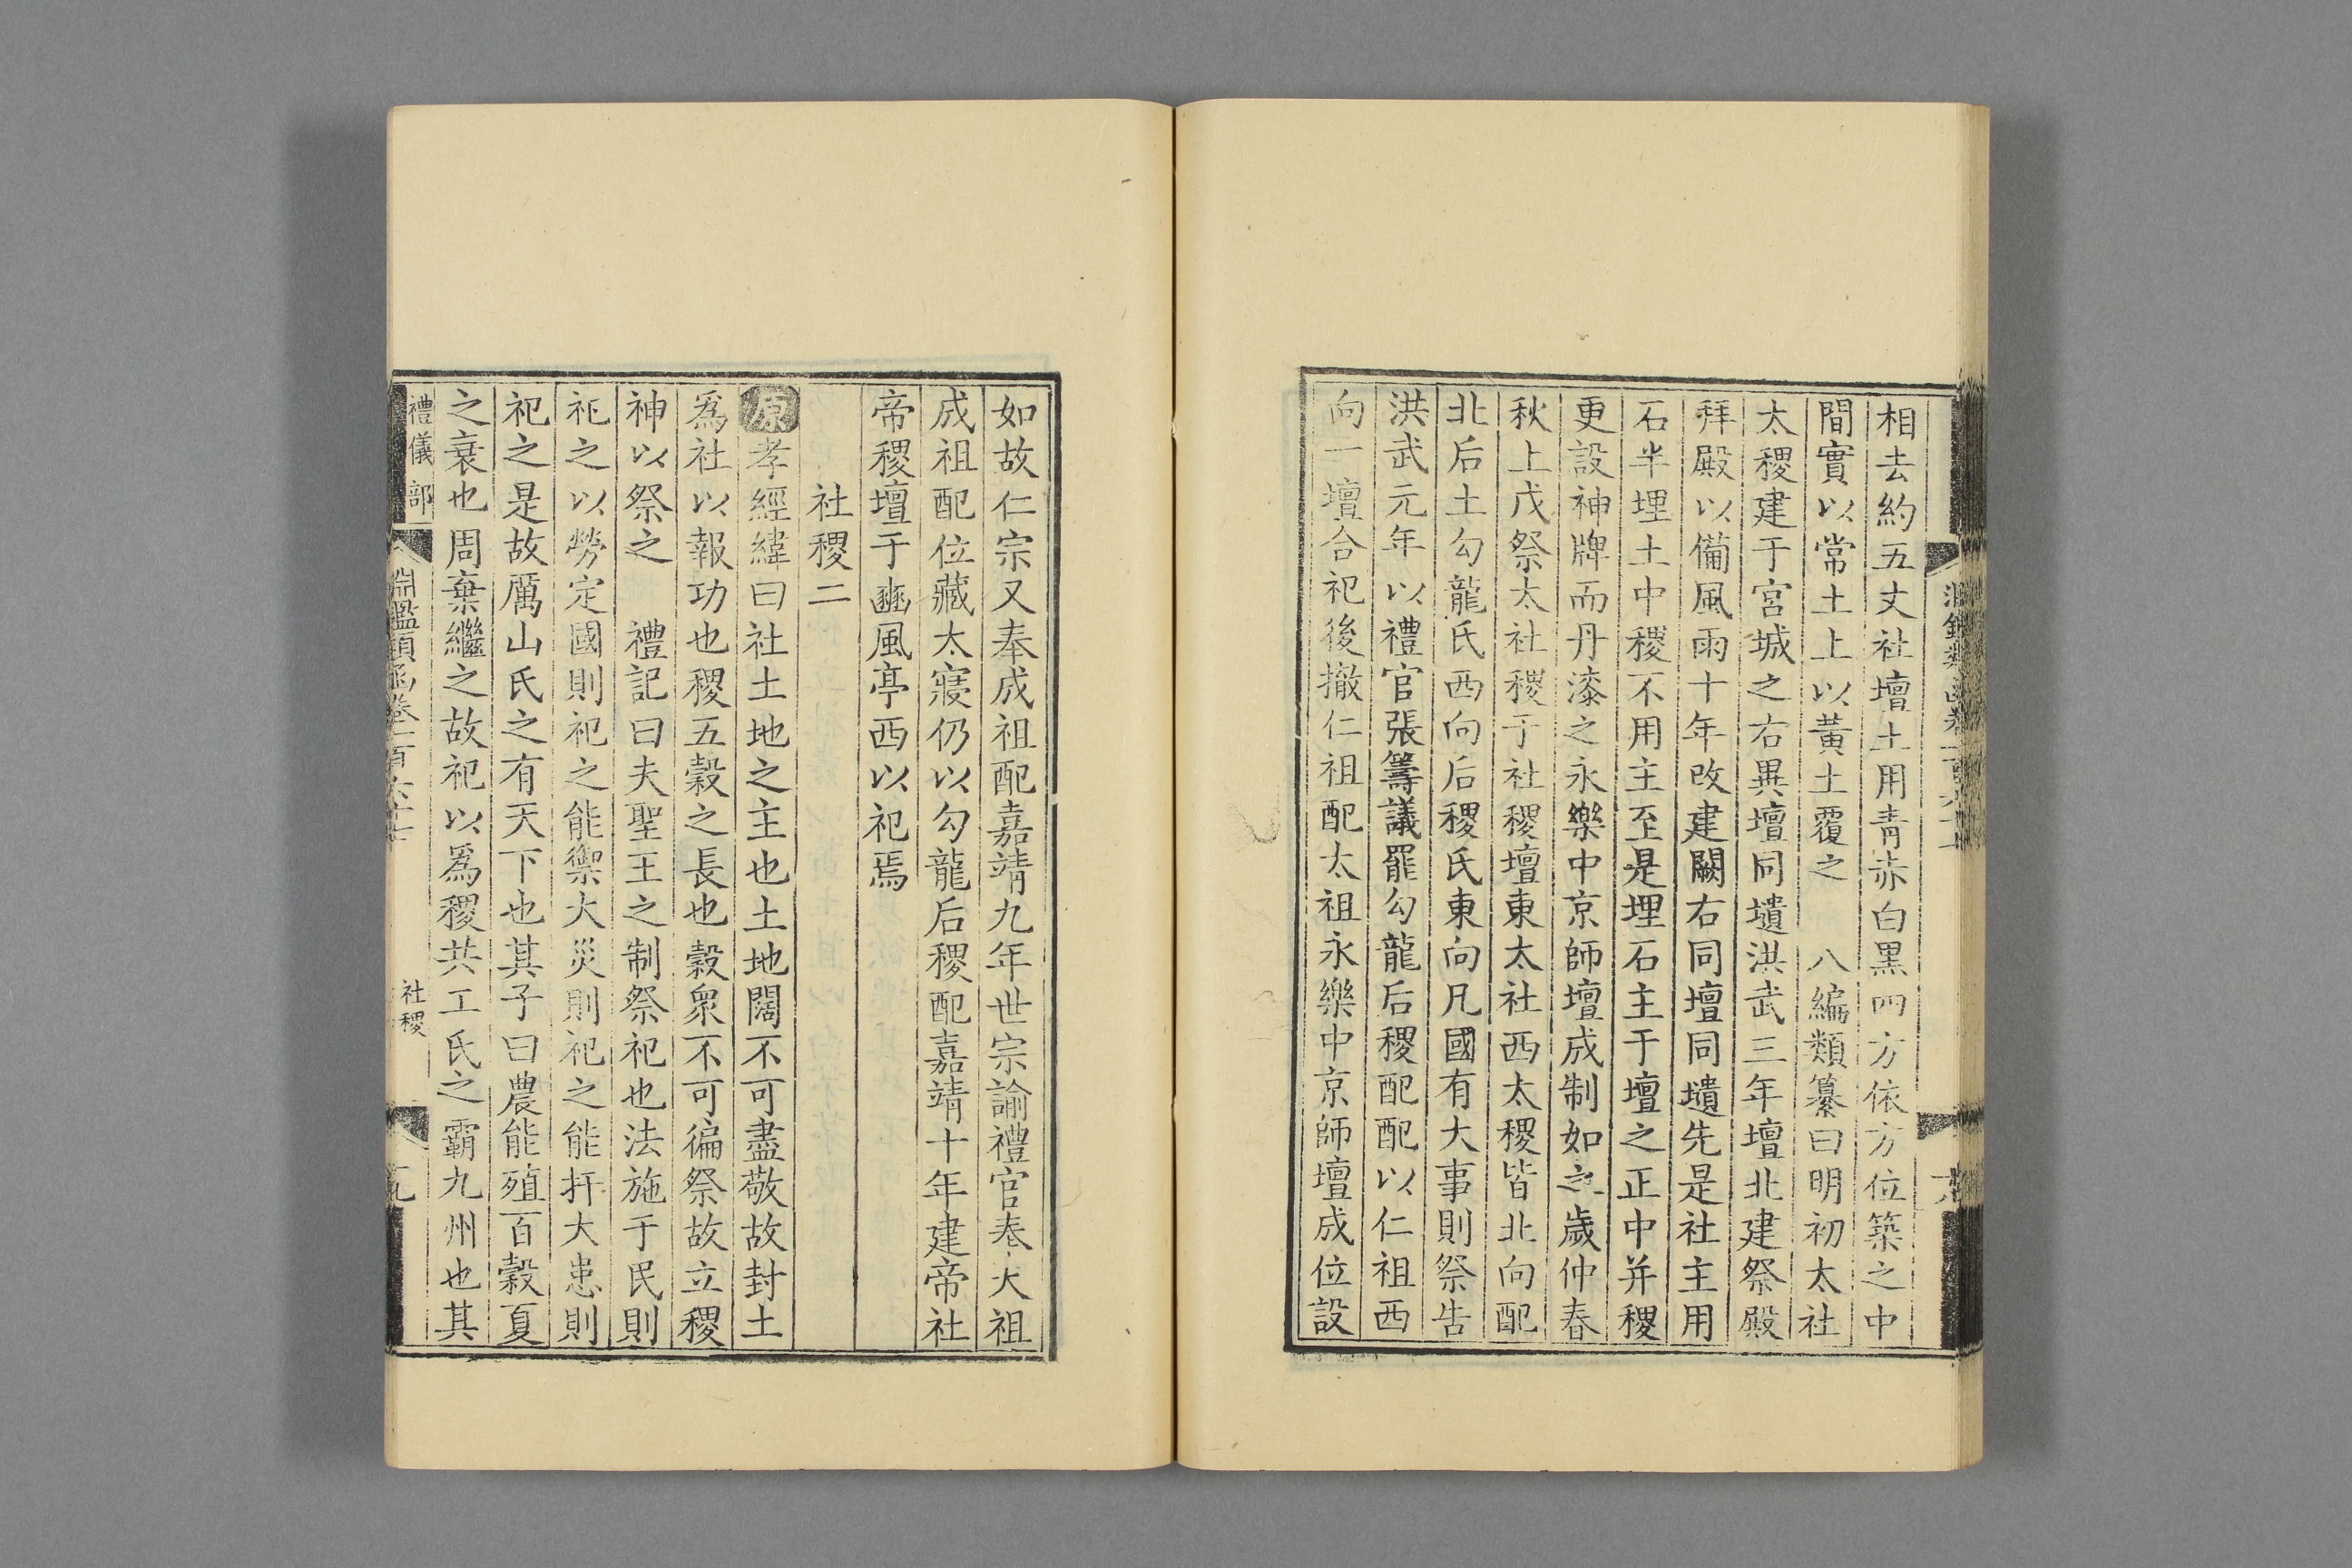 相去約五丈社壇土用青赤白黑四方依方位築之中
間實以常土上以黃土覆之　八編類纂曰明初太社
太稷建于宮城之右異壇同壝洪武三年壇北建祭殿
拜殿以備風雨十年改建闕右同壇同壝先是社主用
石半埋土中稷不用主至是埋石主于壇之正中并稷
更設神牌而丹漆之永樂中京師壇成制如之歲仲春
秋上戊祭太社稷于社稷壇東太社西太稷皆北向配
北后土勾龍氏西向后稷氏東向凡國有大事則祭告
洪武元年以禮官張籌議罷勾龍后稷配配以仁祖西
向一壇合祀後撤仁祖配太祖永樂中京師壇成位設
如故仁宗又奉成祖配嘉靖九年世宗諭禮官奉太祖
成祖配位藏太寢仍以勾龍后稷配嘉靖十年建帝社
帝稷壇于豳風亭西以祀焉
社稷二
原孝經緯曰社土地之主也土地闊不可盡敬故封土
爲社以報功也稷五穀之長也穀衆不可徧祭故立稷
神以祭之　禮記曰夫聖王之制祭祀也法施于民則
祀之以勞定國則祀之能禦大災則祀之能扞大患則
祀之是故厲山氏之有天下也其子曰農能殖百穀夏
之衰也周棄繼之故祀以爲稷共工氏之霸九州也其
禮儀部
淵鑑類函卷一百六十七
社稷